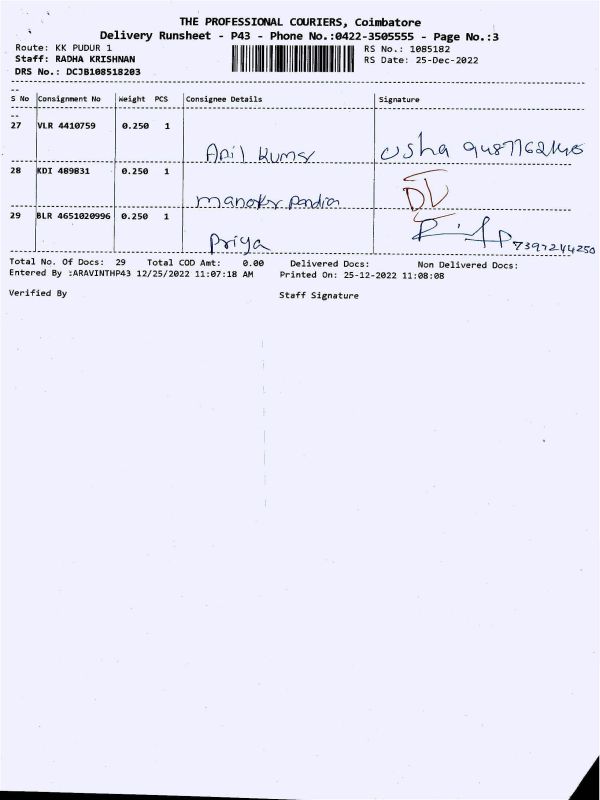 THE PROFESSIONAL COURIERS, Coimbatore
Delivery Runsheet - P43 - Phone No.:0422-3505555 - Page No.:3
Route: KK PUDUR 1 RS No.: 1085182
Staff: RADHA KRISHNAN RS Date: 25-Dec-2022
DRS No.: DCJB108518203
S No Consignment No Weight PCS Consignee Details Signature
27 VLR 4410759 0.250 1
Anil kumar usha
28 KDI 489831 0.250 1
DL
29 BLR 4651020996 0.250 1
Priya 7397244250
Total No. Of Docs: 29 Total COD Amt: 0.00 Delivered Docs: Non Delivered Docs:
Entered By :ARAVINTHP43 12/25/2022 11:07:18 AM Printed On: 25-12-2022 11:08:08
Verified By Staff Signature